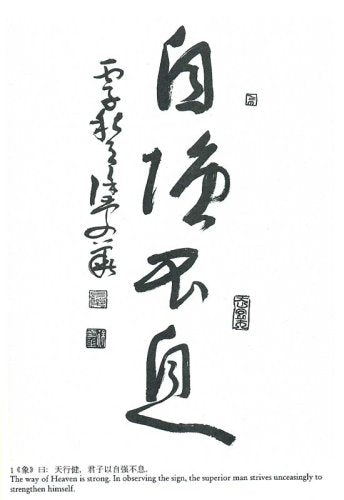 自强不息
丙子秋月
1《象》曰：天行健，君子以自强不息。
The way of Heaven is strong. In observing the sign, the superior man strives unceasingly to
strengthen himself.